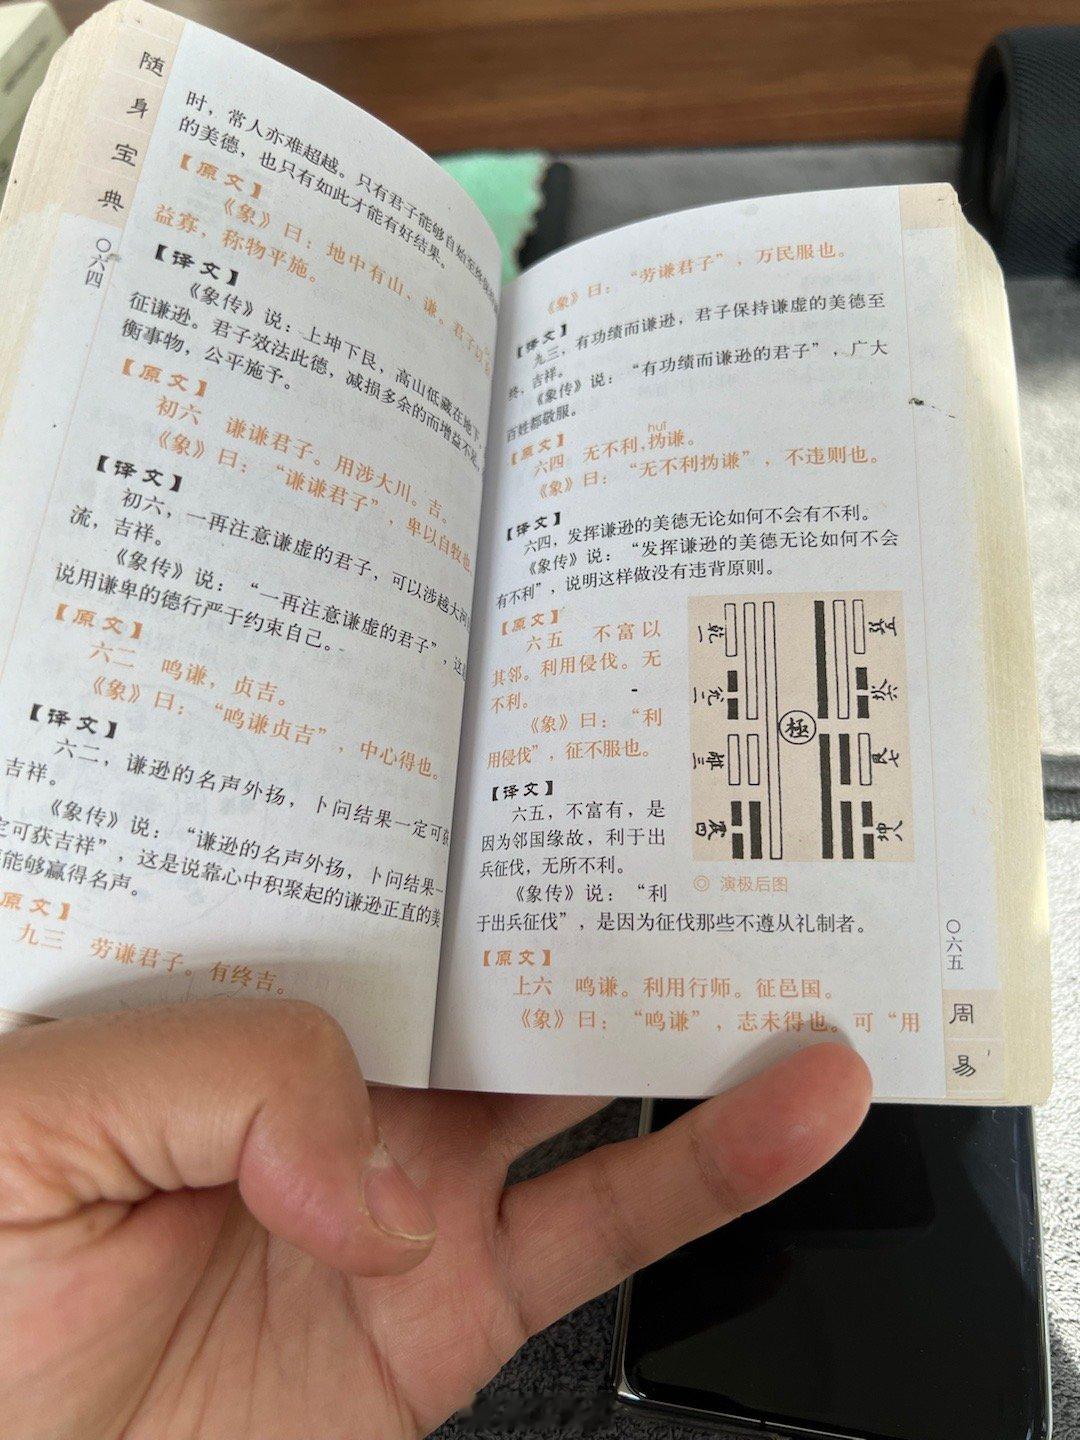 随身宝典
〇六四
时，常人亦难超越。只有君子能够自始至终
的美德，也只有如此才能有好结果。
【原文】
《象》曰：地中有山，谦。君子以
益寡，称物平施。
【译文】
《象传》说：上坤下艮，高山低藏在地下，
征谦逊。君子效法此德，减损多余的而增益不足，
衡事物，公平施予。
【原文】
初六 谦谦君子。用涉大川。吉。
《象》曰：“谦谦君子”，卑以自牧也
【译文】
初六，一再注意谦虚的君子，可以涉越大河
流，吉祥。
《象传》说：“一再注意谦虚的君子”，这
说用谦卑的德行严于约束自己。
【原文】
六二 鸣谦，贞吉。
《象》曰：“鸣谦贞吉”，中心得也。
【译文】
六二，谦逊的名声外扬，卜问结果一定可获
吉祥。
《象传》说：“谦逊的名声外扬，卜问结果一
定可获吉祥”，这是说靠心中积聚起的谦逊正直的美
能够赢得名声。
原文】
九三 劳谦君子。有终吉。
《象》曰：“劳谦君子”，万民服也。
【译文】
九三，有功绩而谦逊，君子保持谦虚的美德至
终，吉祥。
《象传》说：“有功绩而谦逊的君子”，广大
百姓都敬服。
【原文】
huī
六四 无不利，㧑谦。
《象》曰：“无不利㧑谦”，不违则也。
【译文】
六四，发挥谦逊的美德无论如何不会有不利。
《象传》说：“发挥谦逊的美德无论如何不会
有不利”，说明这样做没有违背原则。
【原文】
六五 不富以
其邻。利用侵伐。无
不利。
《象》曰：“利
用侵伐”，征不服也。
【译文】
六五，不富有，是
因为邻国缘故，利于出
兵征伐，无所不利。
《象传》说：“利
于出兵征伐”，是因为征伐那些不遵从礼制者。
乾一
兑二
離三
震四
極
巽五
坎六
艮七
坤八
◎ 演极后图
【原文】
上六 鸣谦。利用行师。征邑国。
《象》曰：“鸣谦”，志未得也。可“用
〇六五
周易